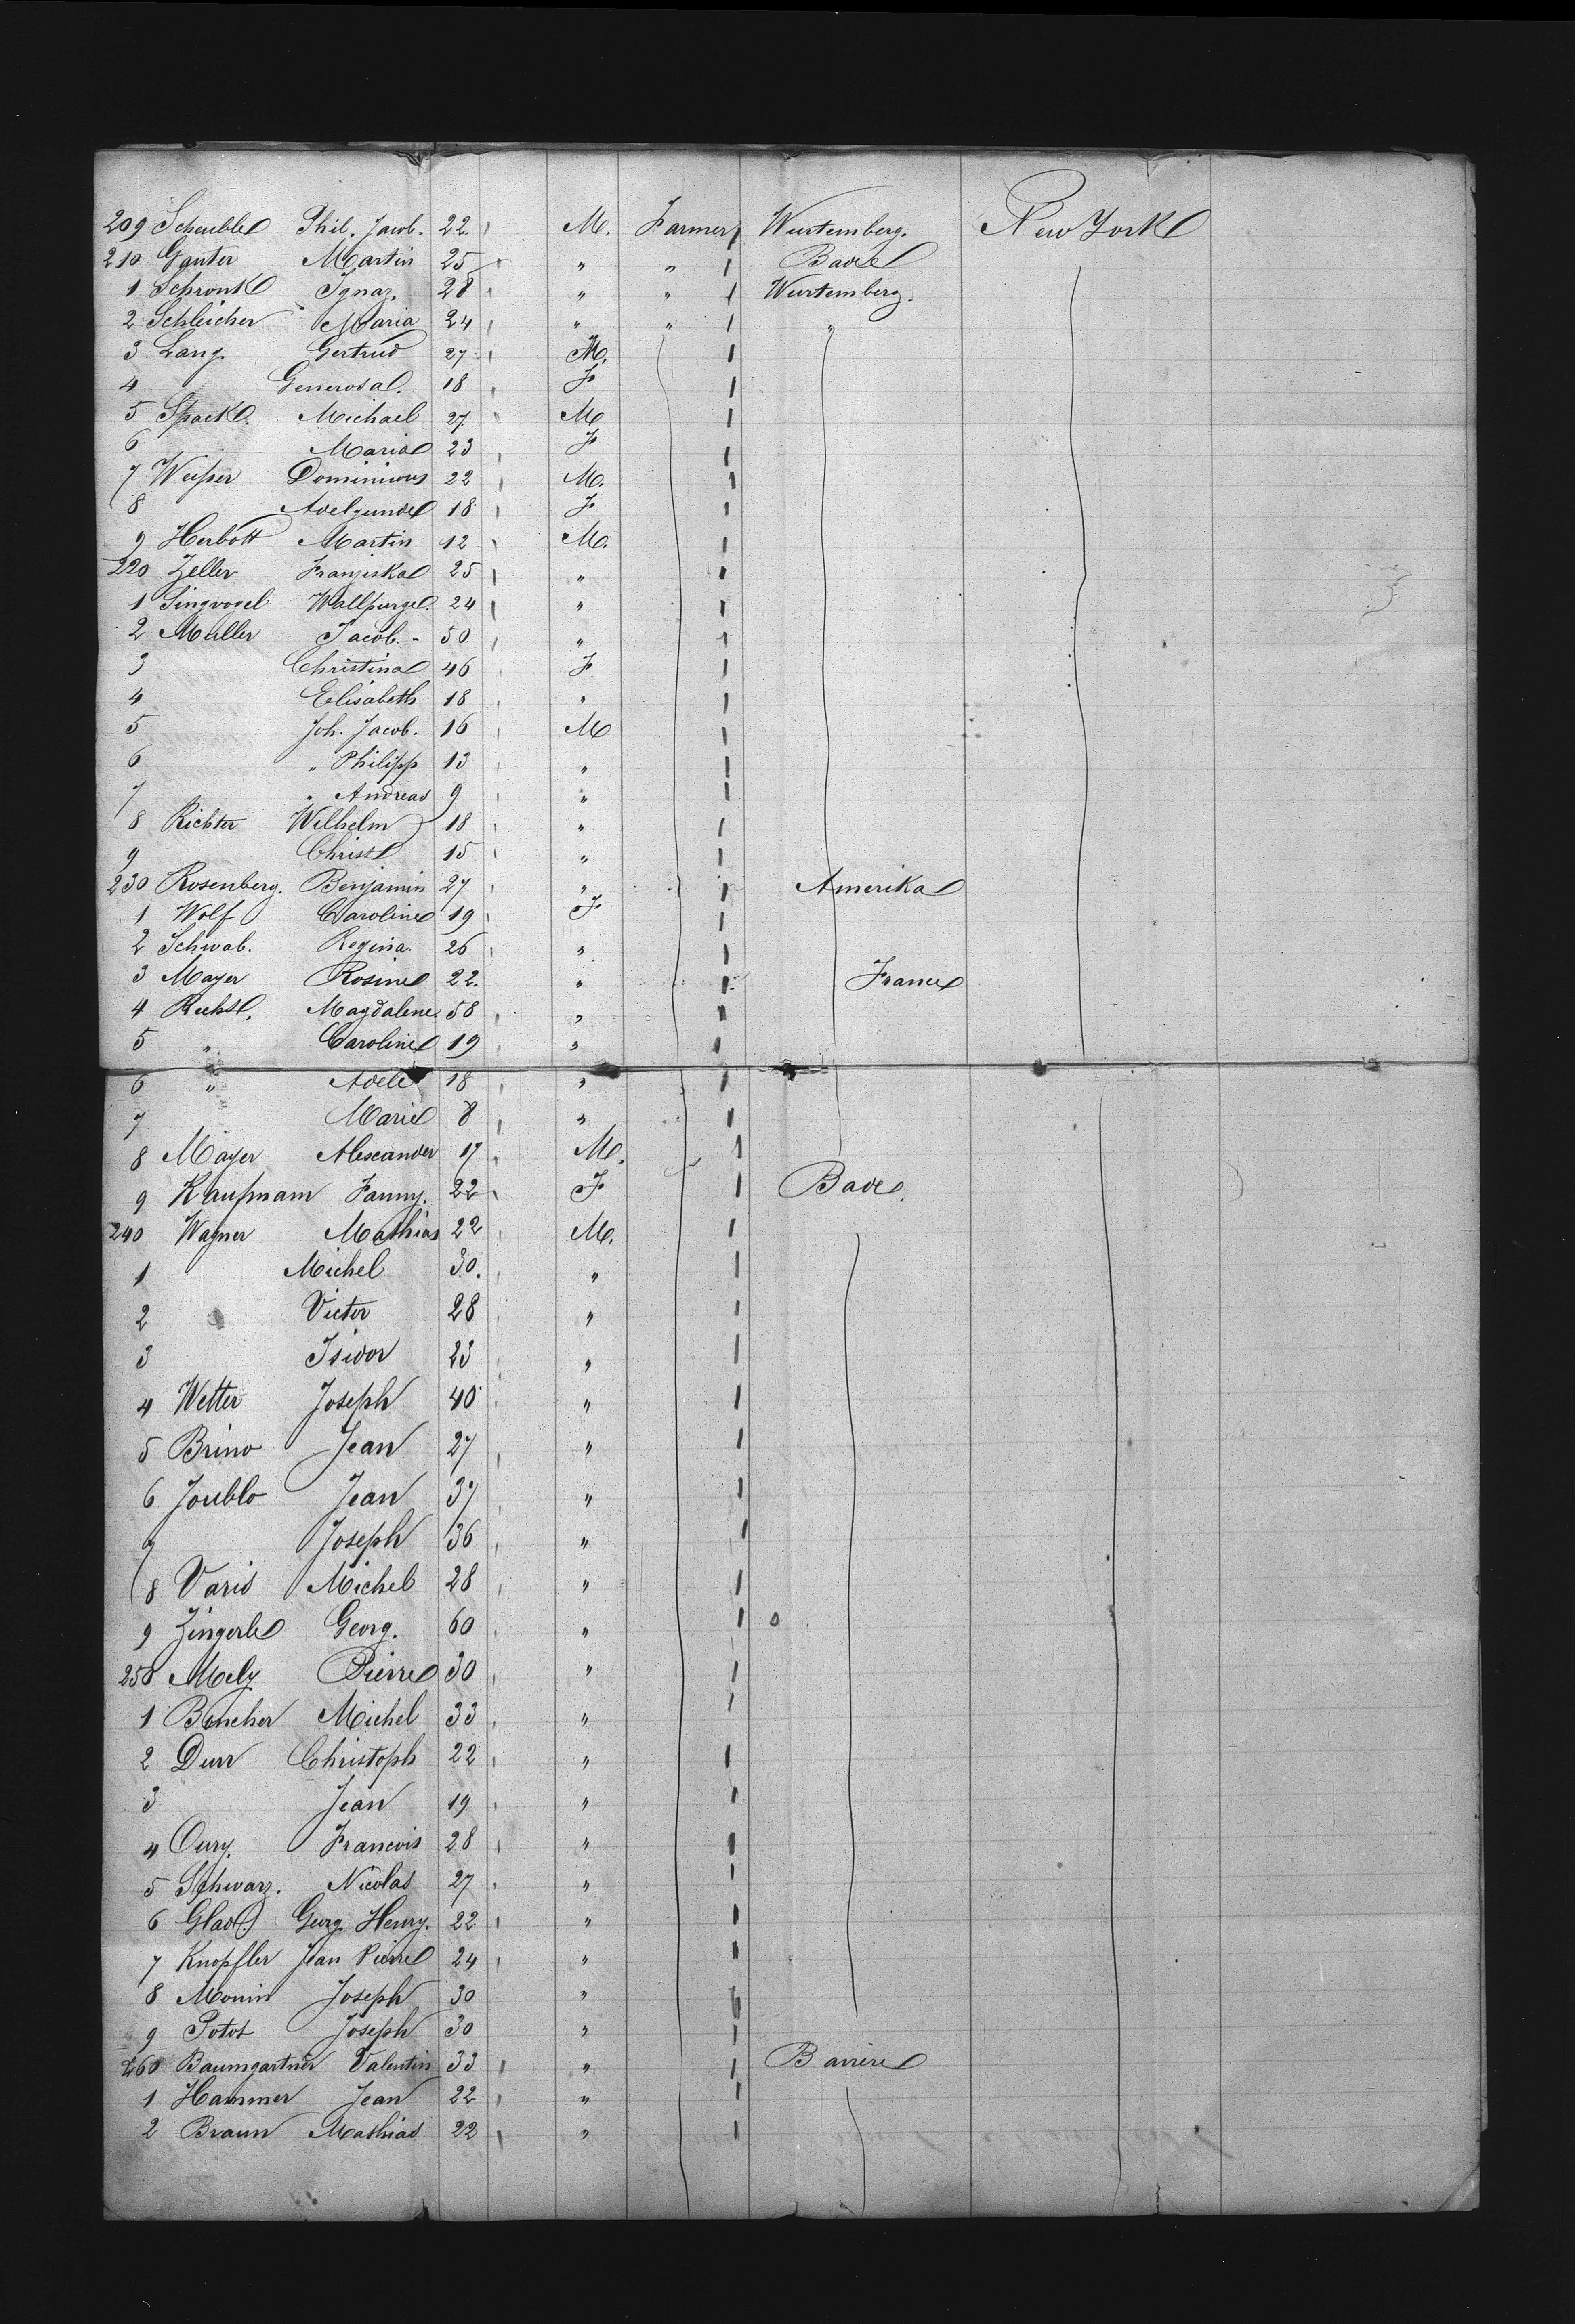 209 Scheuble Phil. Jacob. 22 M. Farmer Wurtemberg. New York
210 Ganter Martin 25 " " Bade
1 Schronk Ignaz. 28 " " Wurtemberg.
2 Schleicher Maria 24 " " "
3 Lang. Gertrud 27 M.
4 Generosa. 18 F
5 Spack. Michael 27. M
6 Maria 23 F
7 Weißer Dominicus 22 M.
8 Adelgunde 18 F
9 Herbott Martin 12 M.
220 Zeller Franziska 25 "
1 Singvogel Wallpurge. 24 "
2 Müller Jacob. 50 "
3 Christina 46 F
4 Elisabeth 18 "
5 Joh. Jacob. 16 M
6 " Philipp 13 "
7 " Andreas 9 "
8 Richter Wilhelm 18 "
9 Christ 15 "
230 Rosenberg. Benjamin 27 " Amerika
1 Wolf Caroline 19 F
2 Schwab. Regina. 26 "
3 Mayer Rosine 22. " France
4 Magdalene 58 "
5 " Caroline 19 "
6 " Adele 18 "
7 Marie 8 "
8 Mayer Alexander 17 M.
9 Kaufmann Fanny. 22 F Bade.
240 Wagner Mathias 22 M.
1 Michel 30. "
2 Victor 28 "
3 Isidor 23 "
4 Wetter Joseph 40 "
5 Brino Jean 27 "
6 Joublo Jean 37 "
7 Joseph 36 "
8 Varis Michel 28 "
9 Zingerle Georg. 60 "
250 Mely Pierre 30 "
1 Boncher Michel 33 "
2 Durr Christoph 22 "
3 Jean 19 "
4 Oury. Francois 28 "
5 Schwarz. Nicolas 27 "
6 Glad. Georg Henry. 22 "
7 Knopfler Jean Pierre 24 "
8 Monin Joseph 30 "
9 Potot Joseph 30 "
260 Baumgartner Valentin 33 " Baviere
1 Hammer Jean 22 "
2 Braun Mathias 22 "